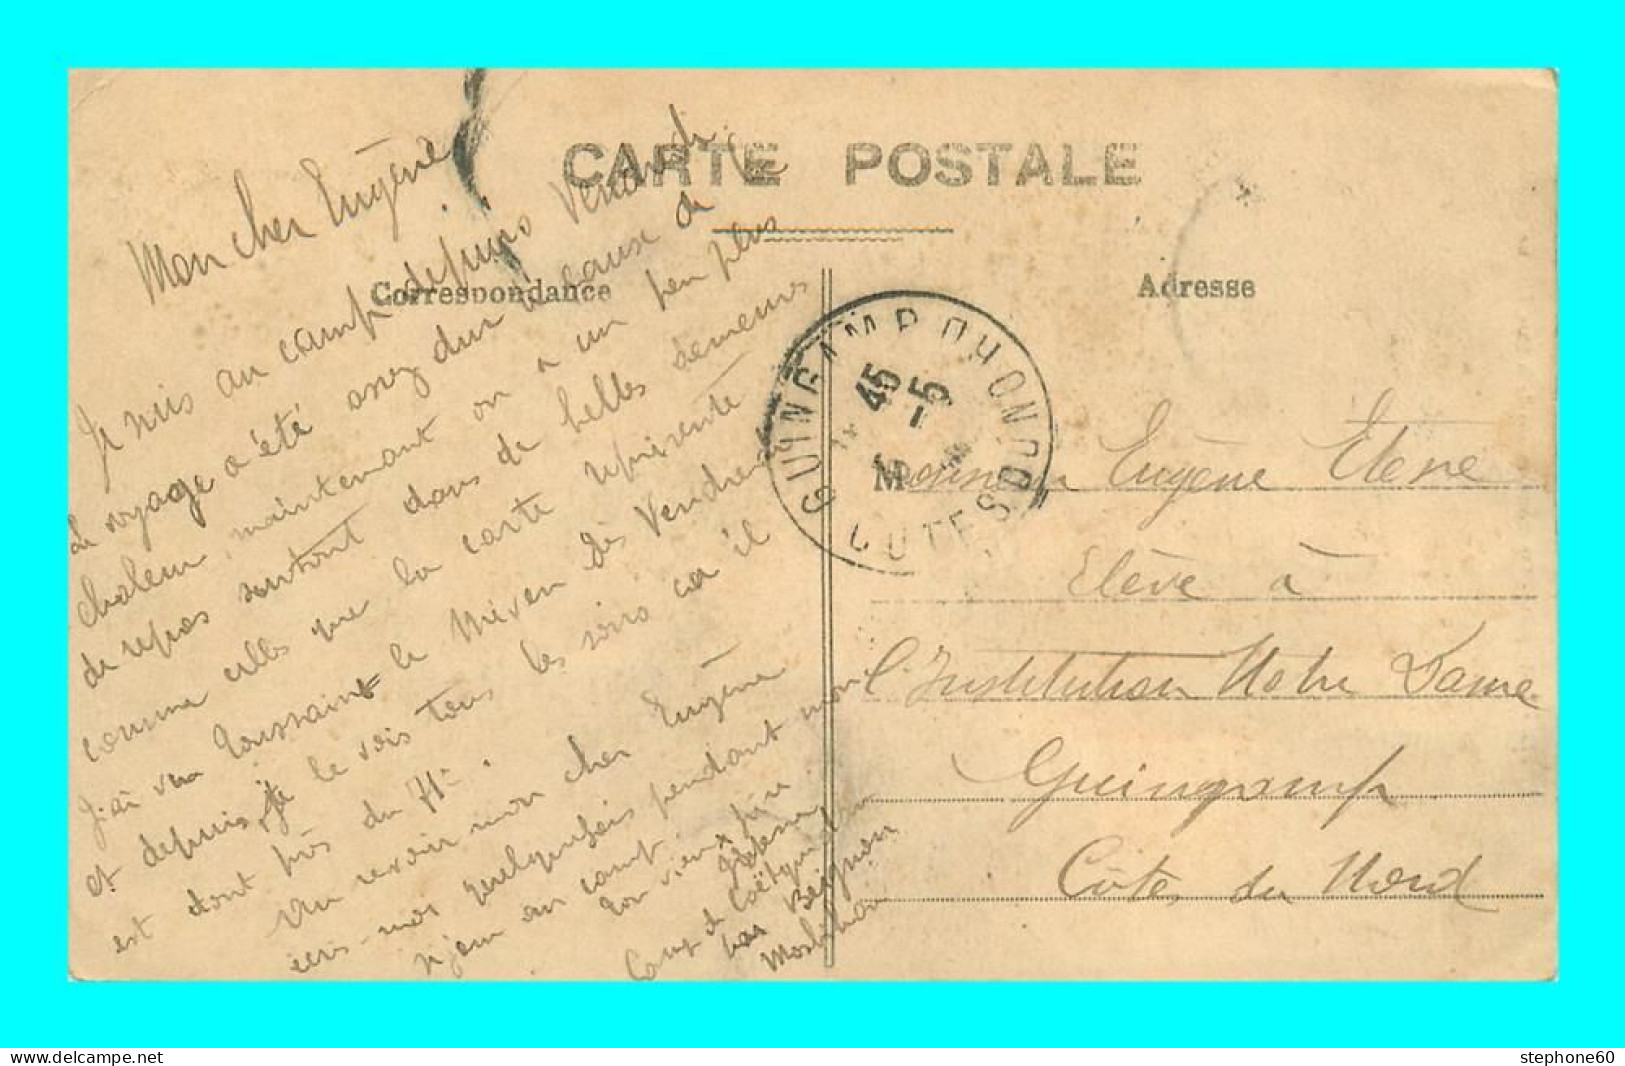 CARTE POSTALE
Correspondance
Adresse
Mon cher Eugène
Je suis au camp depuis Vendredi.
Le voyage a été assez dur à cause de la
chaleur, maintenant on a un peu plus
de repos surtout dans de belles demeures
comme celles que la carte représente
J'ai vu Toussaint le Méven dès Vendredi
et depuis, je le vois tous les soirs car il
est dont près du 71e.
Au revoir mon cher Eugène
écris-moi quelquefois pendant mon
séjour au camp
Ton vieux frère
Camp de Coëtquidan
par Beignon
Morbihan
GUINGAMP
COTES DU NORD
45
5-5
Monsieur Eugène
Elève à
l'Institution Notre Dame
Guingamp
Côtes du Nord
www.delcampe.net
stephone60